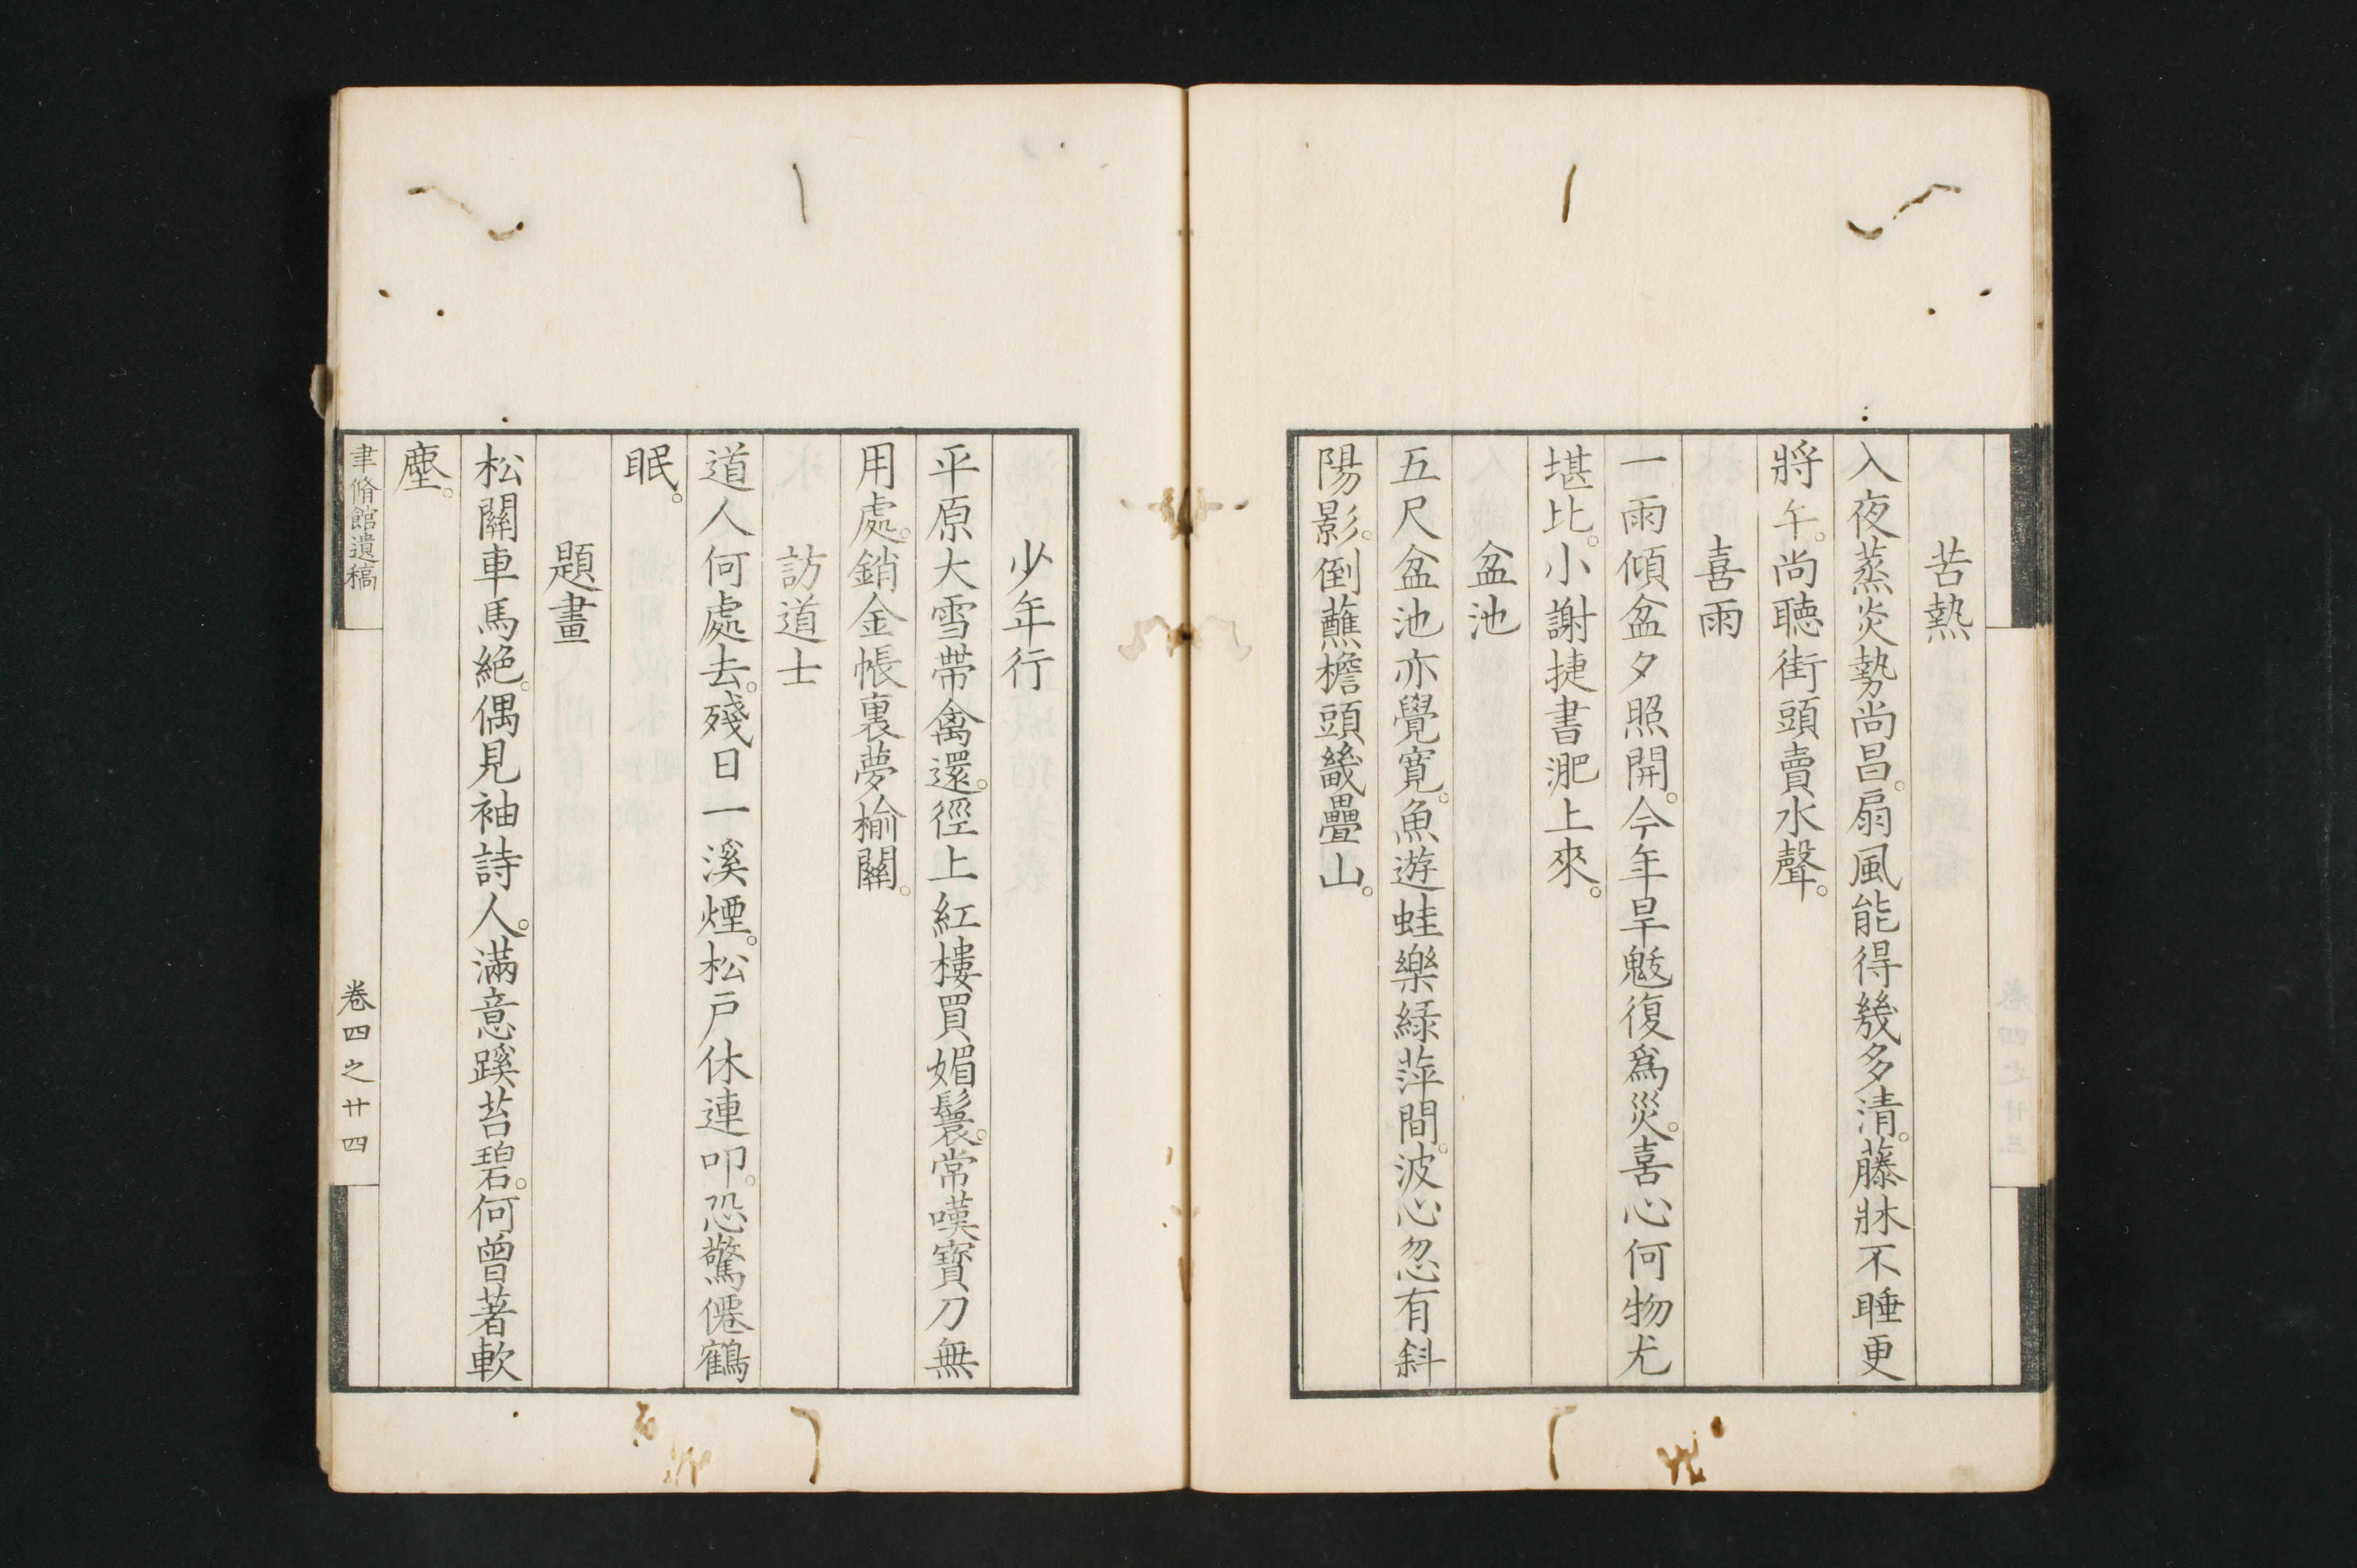 苦熱
入夜蒸炎勢尚昌。扇風能得幾多清。藤牀不睡更
將午。尚聽街頭賣水聲。
喜雨
一雨傾盆夕照開。今年旱魃復爲災。喜心何物尤
堪比。小謝捷書淝上來。
盆池
五尺盆池亦覺寬。魚遊蛙樂緑萍間。波心忽有斜
陽影。倒蘸檐頭幾疊山。
少年行
平原大雪帶禽還。徑上紅樓買媚鬟。常嘆寶刀無
用處。銷金帳裏夢榆關。
訪道士
道人何處去。殘日一溪煙。松戸休連叩。恐驚僊鶴
眠。
題畫
松關車馬絕。偶見袖詩人。滿意蹊苔碧。何曾著軟
塵。
聿脩館遺稿
卷四之廿四